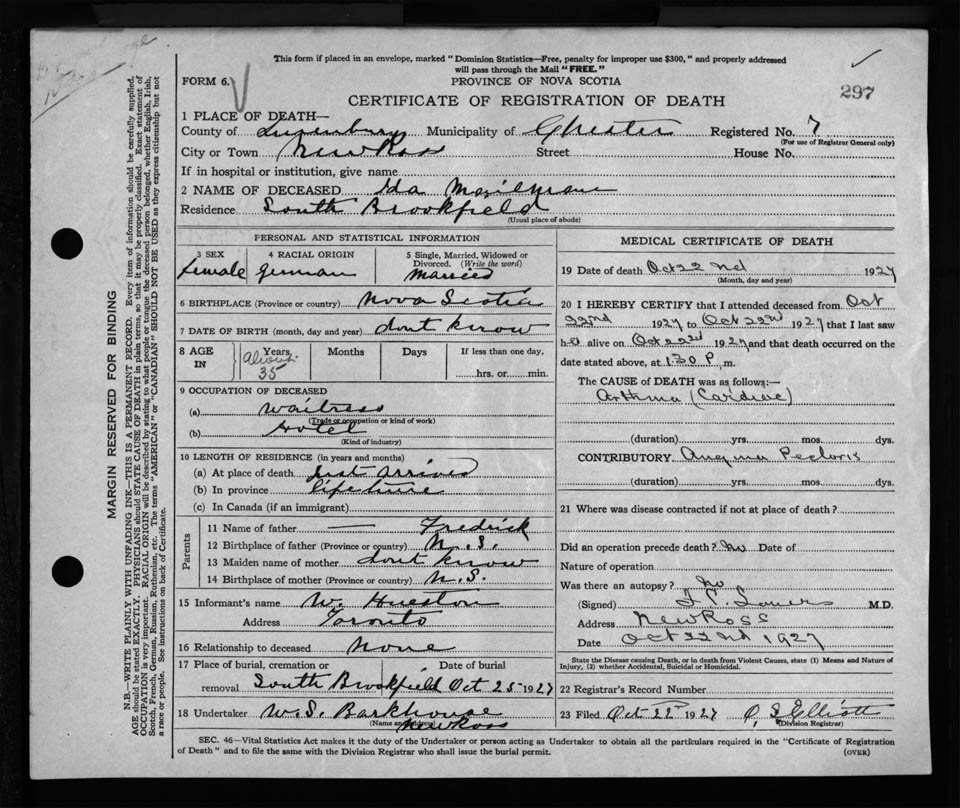 This form if placed in an envelope, marked "Dominion Statistics—Free, penalty for improper use $300," and properly addressed
will pass through the Mail "FREE."
FORM 6.
PROVINCE OF NOVA SCOTIA
297
CERTIFICATE OF REGISTRATION OF DEATH
1 PLACE OF DEATH—
County of Lunenburg Municipality of Chester Registered No. 7
(For use of Registrar General only)
City or Town New Ross Street House No.
If in hospital or institution, give name
2 NAME OF DECEASED Ida
Residence South Brookfield
(Usual place of abode)
PERSONAL AND STATISTICAL INFORMATION
3 SEX 4 RACIAL ORIGIN 5 Single, Married, Widowed or
Divorced. (Write the word)
female german Married
6 BIRTHPLACE (Province or country) Nova Scotia
7 DATE OF BIRTH (month, day and year) dont know
8 AGE IN About 35 Years, Months Days If less than one day,
hrs. or min.
9 OCCUPATION OF DECEASED
(a) Waitress
(Trade or occupation or kind of work)
(b) Hotel
(Kind of industry)
10 LENGTH OF RESIDENCE (in years and months)
(a) At place of death Just arrived
(b) In province lifetime
(c) In Canada (if an immigrant)
Parents
11 Name of father — Fredrick
12 Birthplace of father (Province or country) N. S.
13 Maiden name of mother dont know
14 Birthplace of mother (Province or country) N. S.
15 Informant's name W. Hueston
Address Toronto
16 Relationship to deceased None
17 Place of burial, cremation or removal South Brookfield Date of burial Oct 25 1927
18 Undertaker W. S. Barkhouse
(Name and address)
New Ross
MEDICAL CERTIFICATE OF DEATH
19 Date of death Oct 22 nd 1927
(Month, day and year)
20 I HEREBY CERTIFY that I attended deceased from Oct
22nd 1927 to Oct 22nd 1927 that I last saw
h alive on Oct 22nd 1927 and that death occurred on the
date stated above, at 1.30 P. m.
The CAUSE of DEATH was as follows:—
Asthma (Cardiac)
(duration) yrs. mos. dys.
CONTRIBUTORY Angina Pectoris
(duration) yrs. mos. dys.
21 Where was disease contracted if not at place of death?
Did an operation precede death? No Date of
Nature of operation
Was there an autopsy? No
(Signed) M.D.
Address New Ross
Date Oct 22nd 1927
State the Disease causing Death, or in death from Violent Causes, state (1) Means and Nature of
Injury, (2) whether Accidental, Suicidal or Homicidal.
22 Registrar's Record Number
23 Filed Oct 22 1927 Elliott
(Division Registrar)
SEC. 46—Vital Statistics Act makes it the duty of the Undertaker or person acting as Undertaker to obtain all the particulars required in the "Certificate of Registration
of Death" and to file the same with the Division Registrar who shall issue the burial permit. (OVER)
MARGIN RESERVED FOR BINDING
N.B.—WRITE PLAINLY WITH UNFADING INK—THIS IS A PERMANENT RECORD. Every item of information should be carefully supplied.
AGE should be stated EXACTLY. PHYSICIANS should STATE CAUSE OF DEATH in plain terms, so that it may be properly classified. Exact statement of
OCCUPATION is very important. RACIAL ORIGIN will be described by stating to what people or tongue the deceased person belonged, whether English, Irish,
Scotch, French, German, Russian, Ruthenian, etc. The terms "AMERICAN" or "CANADIAN" SHOULD NOT BE USED as they express citizenship but not
a race or people. See instructions on back of Certificate.